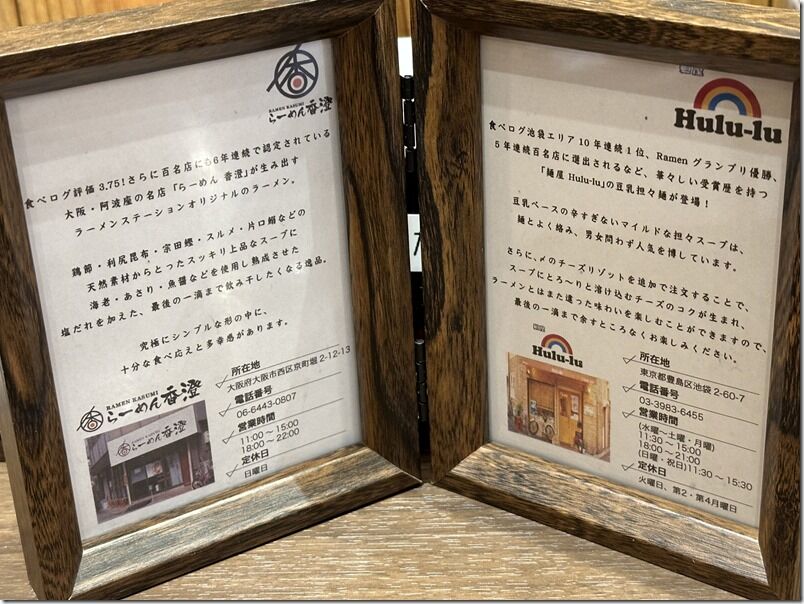 香
RAMEN KASUMI
らーめん香澄
食べログ評価3.75!さらに百名店にも6年連続で認定されている
大阪・阿波座の名店「らーめん 香澄」が生み出す
ラーメンステーションオリジナルのラーメン。
鶏節・利尻昆布・宗田鰹・スルメ・片口鰯などの
天然素材からとったスッキリ上品なスープに
海老・あさり・魚醤などを使用し熟成させた
塩だれを加えた、最後の一滴まで飲み干したくなる逸品。
究極にシンプルな形の中に、
十分な食べ応えと多幸感があります。
RAMEN KASUMI
らーめん香澄
らーめん香澄
所在地
大阪府大阪市西区京町堀2-12-13
電話番号
06-6443-0807
営業時間
11:00〜15:00
18:00〜22:00
定休日
日曜日
Hulu-lu
食べログ池袋エリア10年連続1位、Ramenグランプリ優勝、
5年連続百名店に選出されるなど、華々しい受賞歴を持つ
「麺屋 Hulu-lu」の豆乳担々麺が登場!
豆乳ベースの辛すぎないマイルドな担々スープは、
麺とよく絡み、男女問わず人気を博しています。
さらに、〆のチーズリゾットを追加で注文することで、
スープにとろ〜りと溶け込むチーズのコクが生まれ、
ラーメンとはまた違った味わいを楽しむことができますので、
最後の一滴まで余すところなくお楽しみください。
Hulu-lu
所在地
東京都豊島区池袋2-60-7
電話番号
03-3983-6455
営業時間
(水曜〜土曜・月曜)
11:30〜15:00
18:00〜21:00
(日曜・祝日)11:30〜15:30
定休日
火曜日、第2・第4月曜日